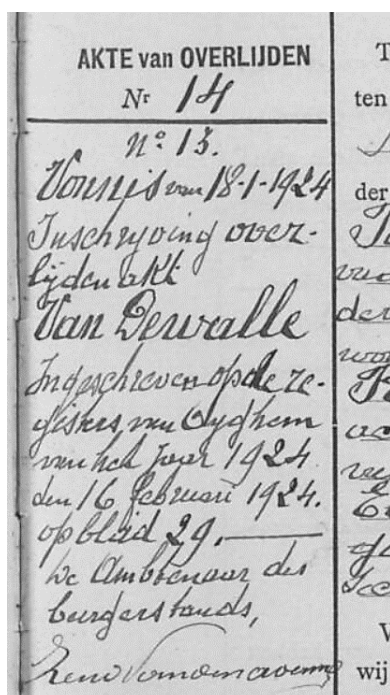 AKTE van OVERLIJDEN
Nr 14
No. 13.
Vonnis van 18-1-1924
Inschrijving over-
lijdenakt
Van Dewalle
Ingeschreven op de re-
gisters van Oyghem
van het jaar 1924
den 16 februari 1924.
op blad 29.
De Ambtenaar des
burgerstands,
T
ten
der
wij